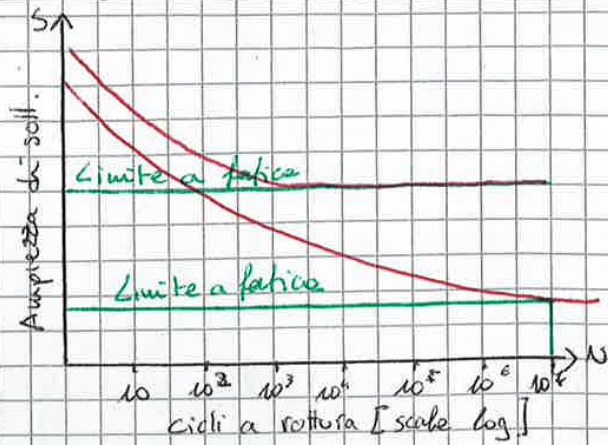 S
Ampiezza di soll.
Limite a fatica
Limite a fatica
10 10² 10³ 10⁴ 10⁵ 10⁶ 10⁷
N
cicli a rottura [scale log]